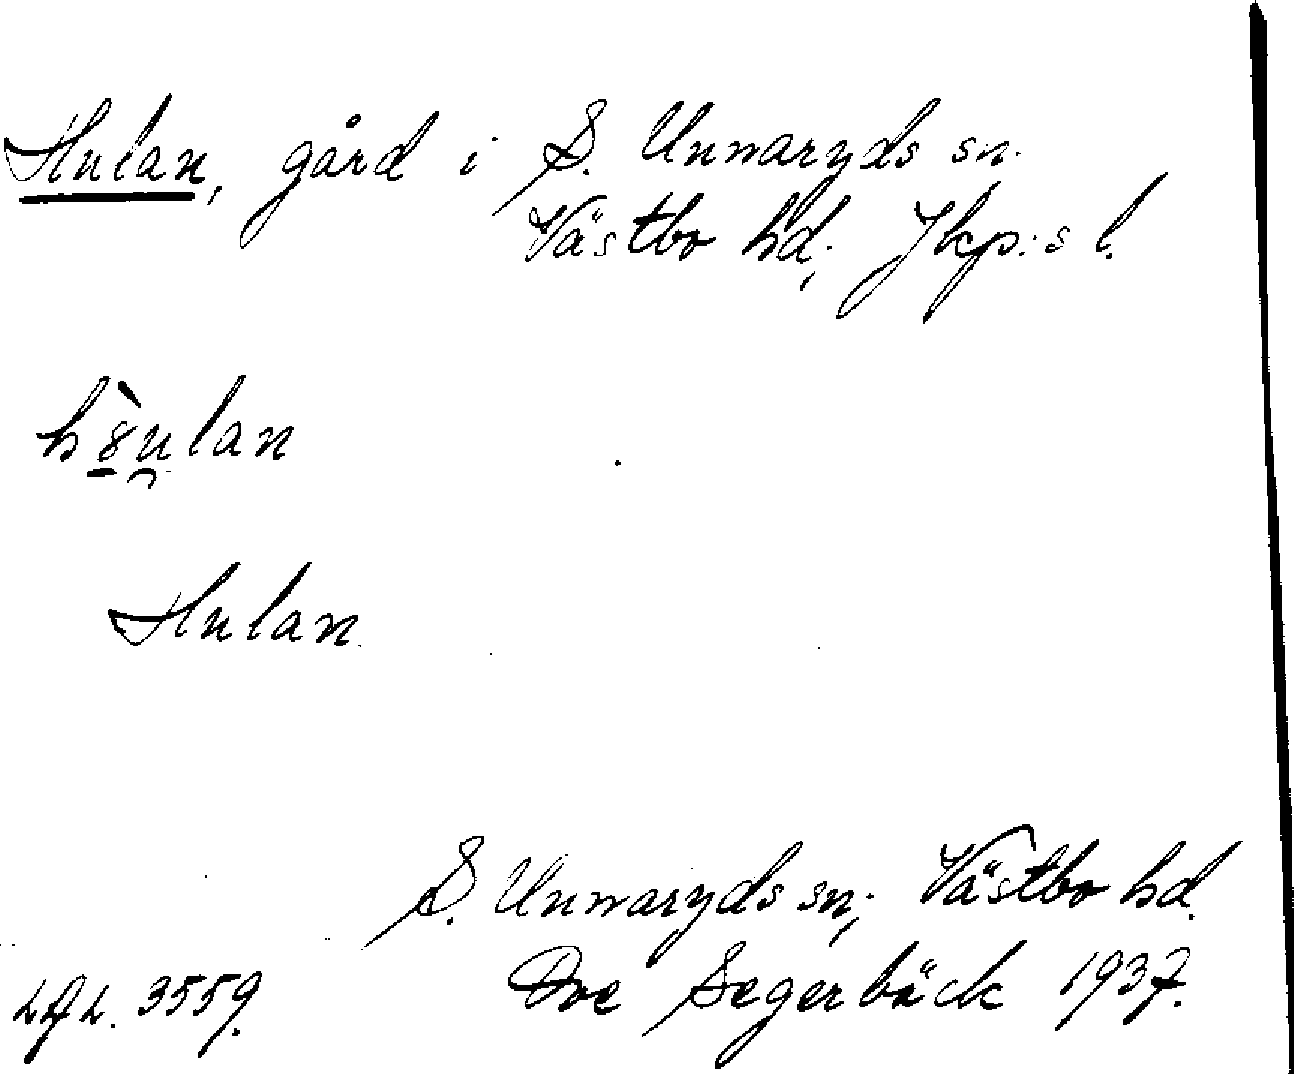 Hulan, gård i S. Unnaryds sn.
Västbo hd; Jkp:s l.
Hulan
S. Unnaryds sn; Västbo hd.
Segerbäck 1937.
3559.